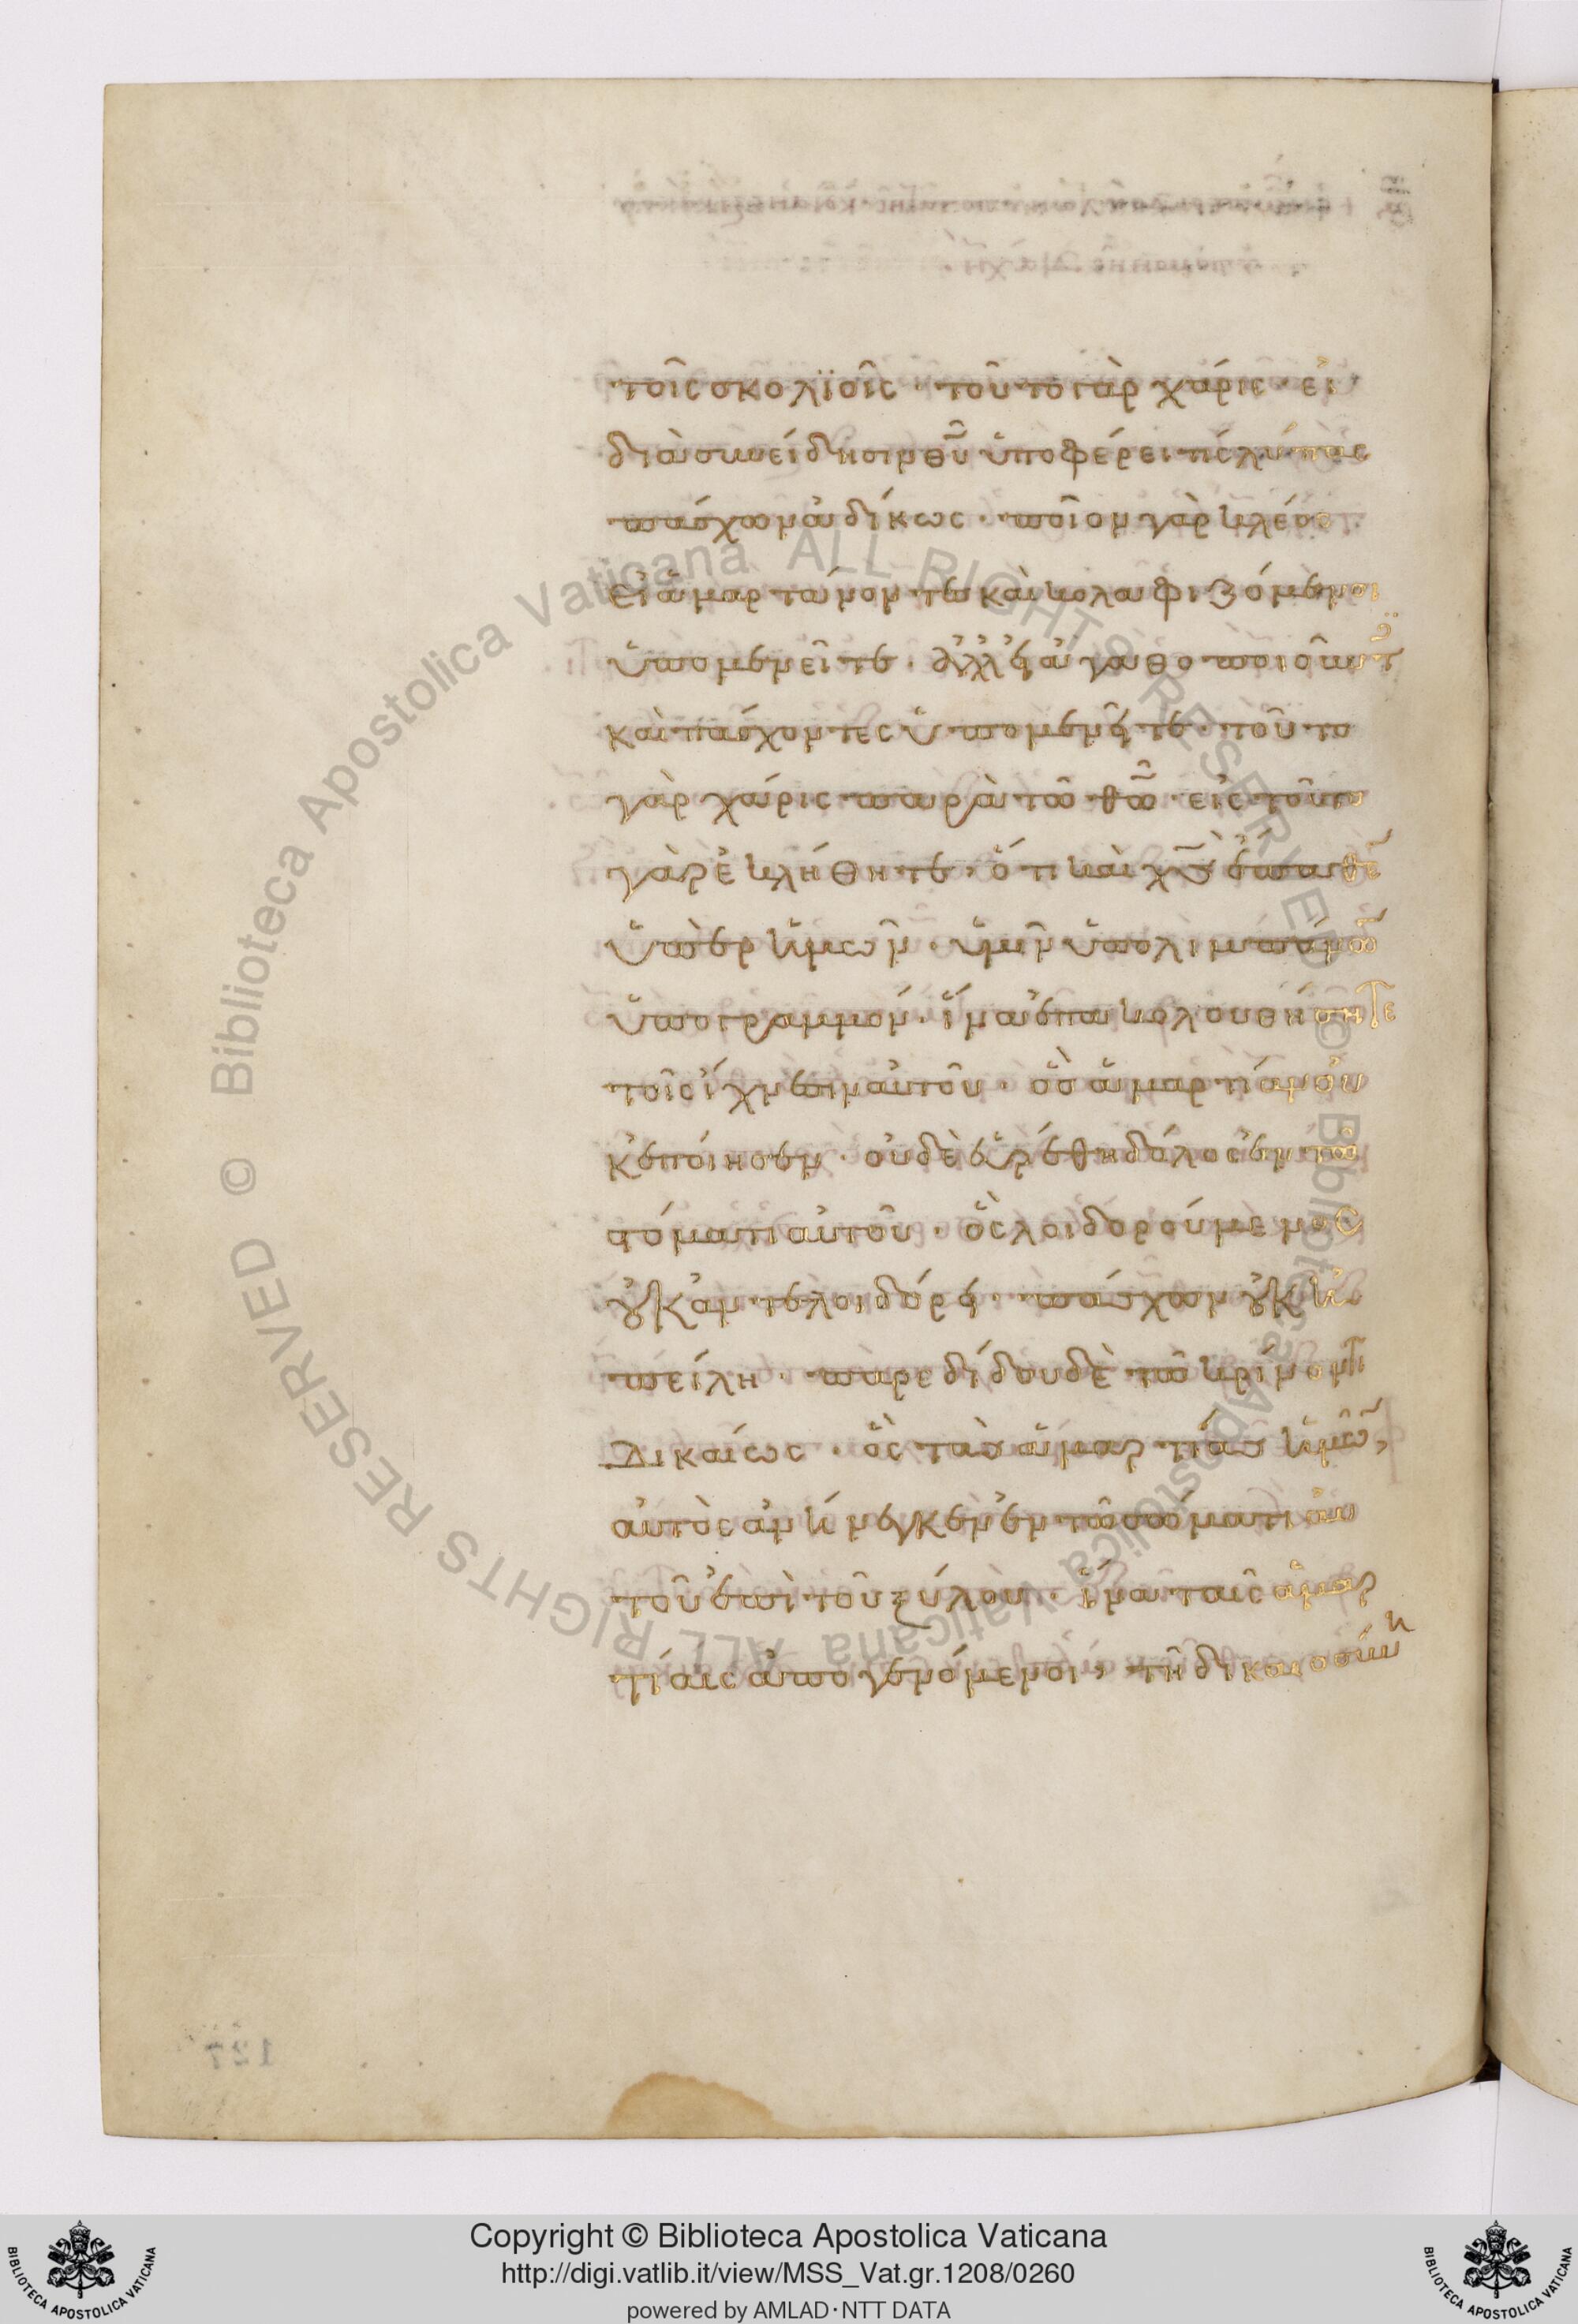 τοῖς σκολϊοῖς · τοῦτο γὰρ χάρις · εἰ
διὰ συνείδησιν θῦ ὑποφέρει τίς λύπας
πάσχων ἀδίκως · ποῖον γὰρ κλέος ·
εἰ ἁμαρτάνοντες καὶ κολαφιζόμενοι
ὑπομενεῖτε · ἀλλ' εἰ ἀγαθοποιοῦντ
καὶ πάσχοντες ὑπομενεῖτε · τοῦτο
γὰρ χάρις παρὰ τῶ θῶ · εἰς τοῦτο
γὰρ ἐκλήθητε · ὅτι καὶ χς ἔπαθε
ὑπὲρ ἡμῶν · ὑμῖν ὑπολιμπάνων
ὑπογραμμόν · ἵνα ἐπακολουθήσητε
τοῖς ἴχνεσιν αὐτοῦ · ὃς ἁμαρτίαν οὐ
κ ἐποίησεν · οὐδὲ εὑρέθη δόλος ἐν τῶ
στόματι αὐτοῦ · ὃς λοιδορούμενος
οὐκ ἀντελοιδόρει · πάσχων οὐκ ἠ
πείλη · παρεδίδου δὲ τῶ κρίνοντι
δικαίως · ὃς τὰς ἁμαρτίας ἡμῶ,
αὐτὸς ἀνήνεγκεν ἐν τῶ σώματι αὐ
τοῦ ἐπὶ τοῦ ξύλου · ἵνα ταῖς ἁμαρ
τίαις ἀπογενόμενοι, τῆ δικαιοσύνη
127
© Biblioteca Apostolica Vaticana ALL RIGHTS RESERVED © Biblioteca Apostolica Vaticana ALL RIGHTS RESERVED
Copyright © Biblioteca Apostolica Vaticana
http://digi.vatlib.it/view/MSS_Vat.gr.1208/0260
powered by AMLAD·NTT DATA
BIBLIOTECA APOSTOLICA VATICANA
BIBLIOTECA APOSTOLICA VATICANA